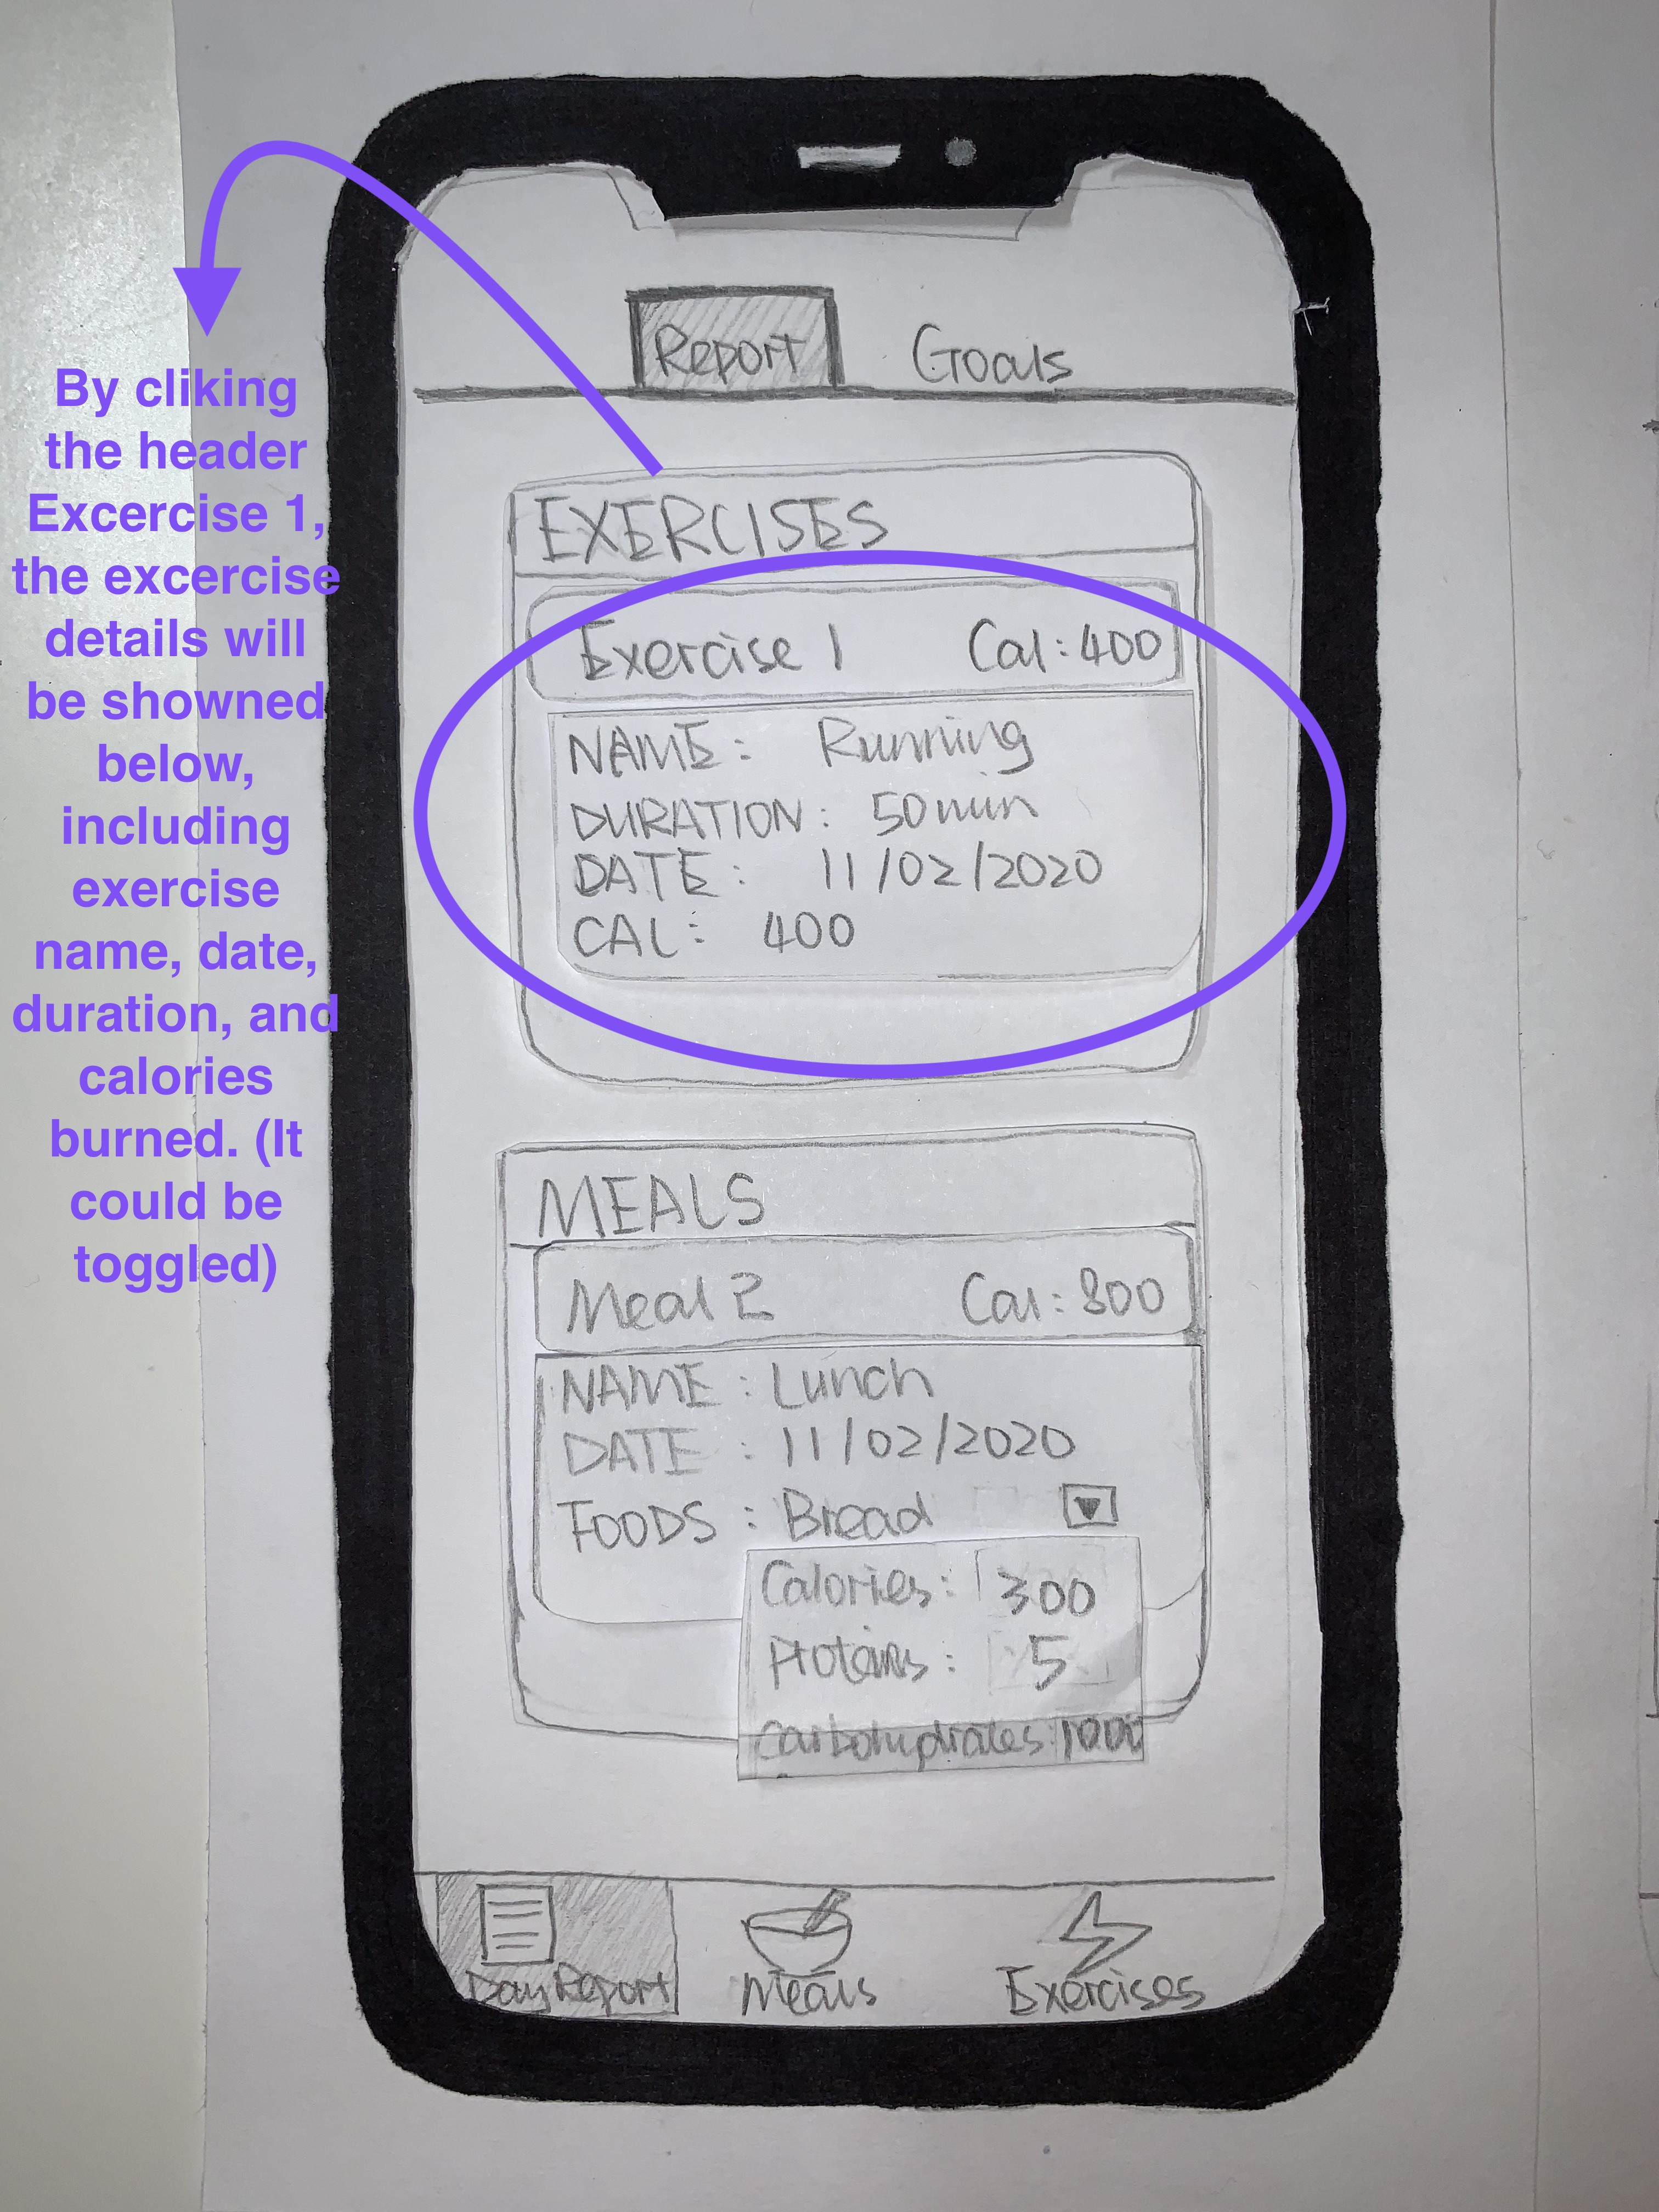 By cliking
the header
Excercise 1,
the excercise
details will
be showned
below,
including
exercise
name, date,
duration, and
calories
burned. (It
could be
toggled)
Report Goals
EXERCISES
Exercise 1 Cal: 400
NAME: Running
DURATION: 50 min
DATE: 11/02/2020
CAL: 400
MEALS
Meal 2 Cal: 800
NAME: Lunch
DATE: 11/02/2020
FOODS: Bread
Calories: 300
Proteins: 5
Carbohydrates:
Day Report Meals Exercises